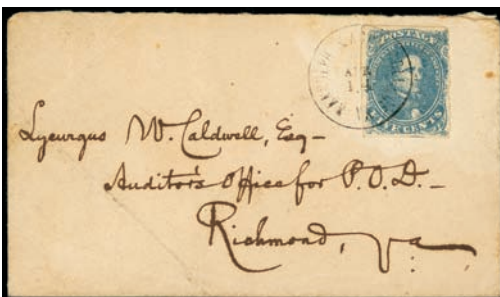 POSTAGE
FIVE CENTS
Lycurgus W. Caldwell, Esq –
Auditor's Office for P.O.D. –
Richmond, Va